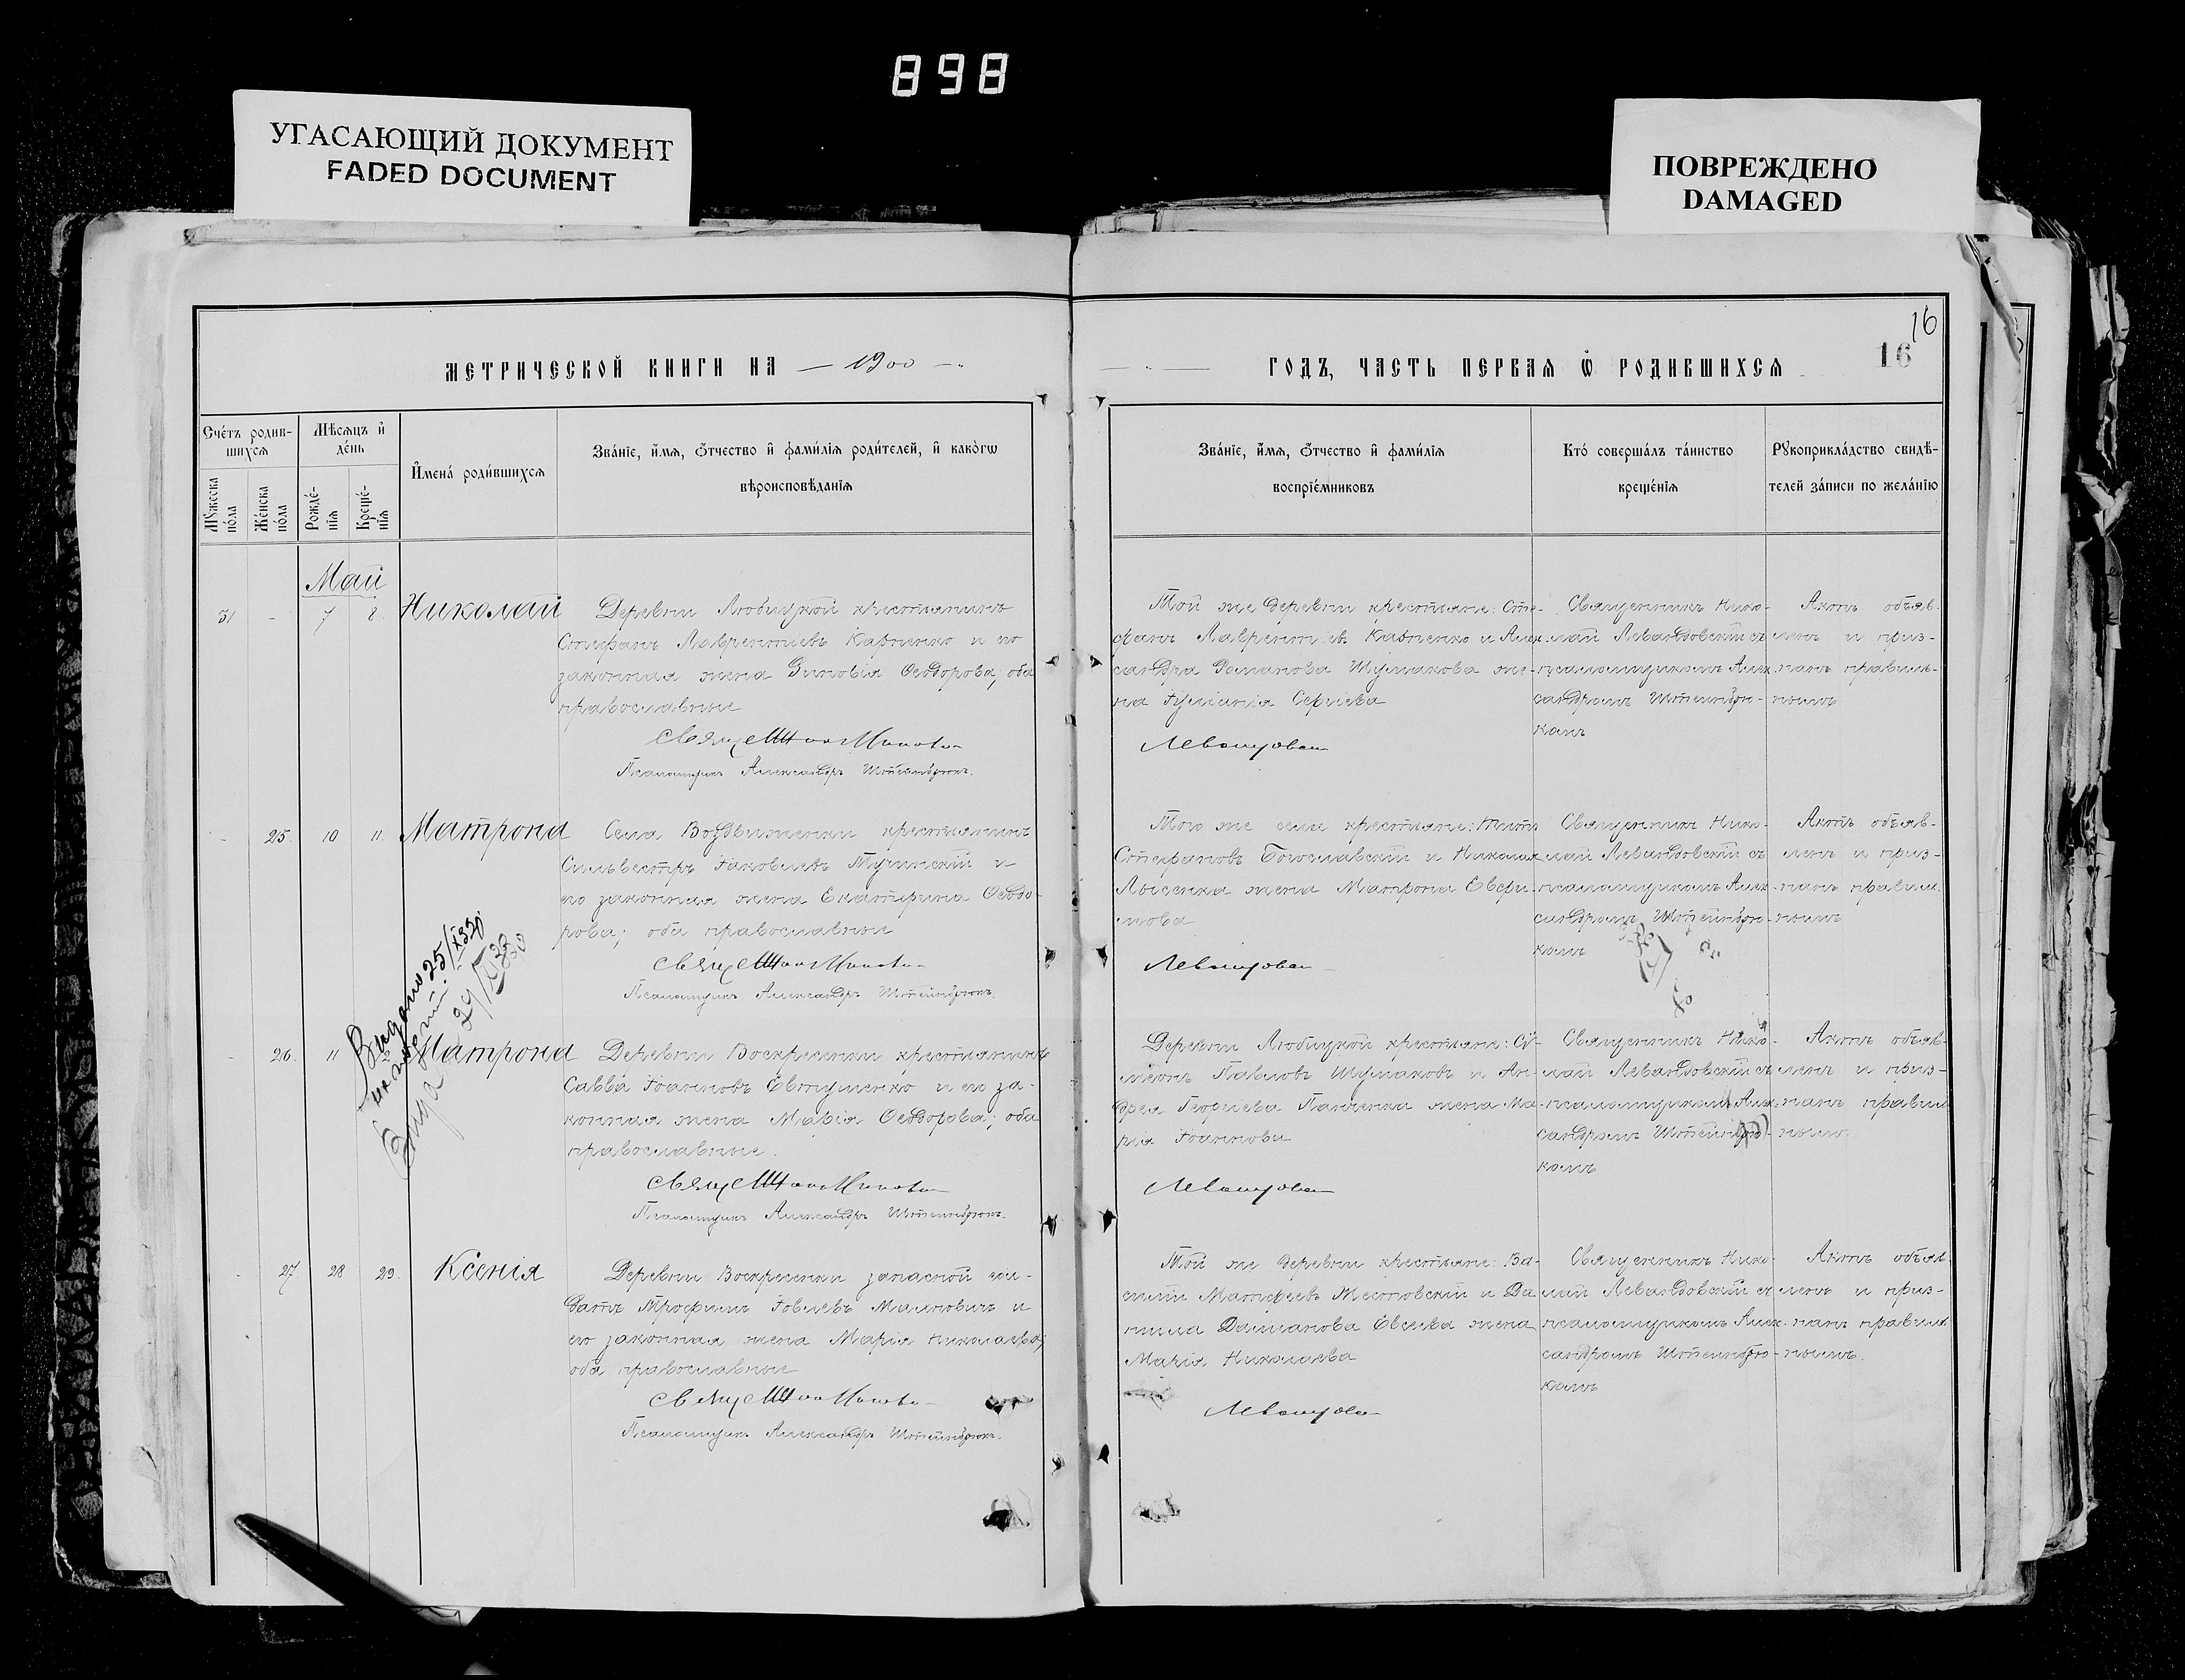 898
УГАСАЮЩИЙ ДОКУМЕНТ
FADED DOCUMENT
ПОВРЕЖДЕНО
DAMAGED
16
16
МЕТРИЧЕСКОЙ КНИГИ НА — 1900 —
ГОДЪ, ЧАСТЬ ПЕРВАѦ Ѽ РОДИВШИХСѦ
Счéтъ родив-
шихсѧ
Мѣсѧцъ и҆
дéнь
Мꙋ́жеска
по́ла
Же́нска
по́ла
Рождé-
нїѧ
Крещé-
нїѧ
И҆мена́ роди́вшихсѧ
Зва́нїе, и҆́мѧ, ѻ҆́тчество и҆ фами́лїѧ роди́телей, и҆ како́гѡ
вѣроисповѣ́данїѧ
Зва́нїе, и҆́мѧ, ѻ҆́тчество и҆ фами́лїѧ
воспрїе́мниковъ
Кто́ соверша́лъ та́инство
креще́нїѧ
Рꙋкоприкла́дство свидѣ́-
телей за́писи по жела́нїю
Май
31 - 7 8 Николай
Деревни Любицкой крестьянинъ
Стефанъ Лаврентіевъ Карпенко и его
законная жена Зиновія Ѳеодорова; оба
православные
Псаломщикъ Александръ Штейнбрюкъ.
Той же деревни крестьяне: Сте-
фанъ Лаврентіевъ Карпенко и Алек-
сандра Романова Шумакова же-
на Іуліанія Сергіева
Священникъ Нико-
лай Левандовскій съ
псаломщикомъ Алек-
сандромъ Штейнбрю-
комъ
Актъ объяв-
ленъ и приз-
нанъ правиль-
нымъ
- 25. 10 11. Матрона
Села Воздвиженки крестьянинъ
Сильвестръ Іаковлевъ Тушинскій и
его законная жена Екатерина Ѳеодо-
рова; оба православные
Псаломщикъ Александръ Штейнбрюкъ.
Того же села крестьяне: Титъ
Стефановъ Богославскій и Николая
Лысенка жена Матрона Евфи-
мова
Священникъ Нико-
лай Левандовскій съ
псаломщикомъ Алек-
сандромъ Штейнбрю-
комъ
Актъ объяв-
ленъ и приз-
нанъ правиль-
нымъ
Выдано 25/
- 26. 11 Матрона
Деревни Воскресенки крестьянинъ
Савва Іоанновъ Евтушенко и его за-
конная жена Марія Ѳеодорова; оба
православные.
Псаломщикъ Александръ Штейнбрюкъ.
Деревни Любицкой крестьяне: Сѵ-
меонъ Павловъ Шумаковъ и Ан-
дрея Георгіева Панченка жена Ма-
рія Іоаннова
Священникъ Нико-
лай Левандовскій съ
псаломщикомъ Алек-
сандромъ Штейнбрю-
комъ
Актъ объяв-
ленъ и приз-
нанъ правиль-
нымъ.
- 27 28 29. Ксенія
Деревни Воскресенки запасной сол-
датъ Трофимъ Іовлевъ Малювичъ и
его законная жена Марія Николаева;
оба православные
Псаломщикъ Александръ Штейнбрюкъ.
Той же деревни крестьяне: Ва-
силій Матфеевъ Мостовскій и Да-
ніила Даміанова Евсѣева жена
Марія Николаева
Священникъ Нико-
лай Левандовскій съ
псаломщикомъ Алек-
сандромъ Штейнбрю-
комъ
Актъ объяв-
ленъ и приз-
нанъ правиль-
нымъ.